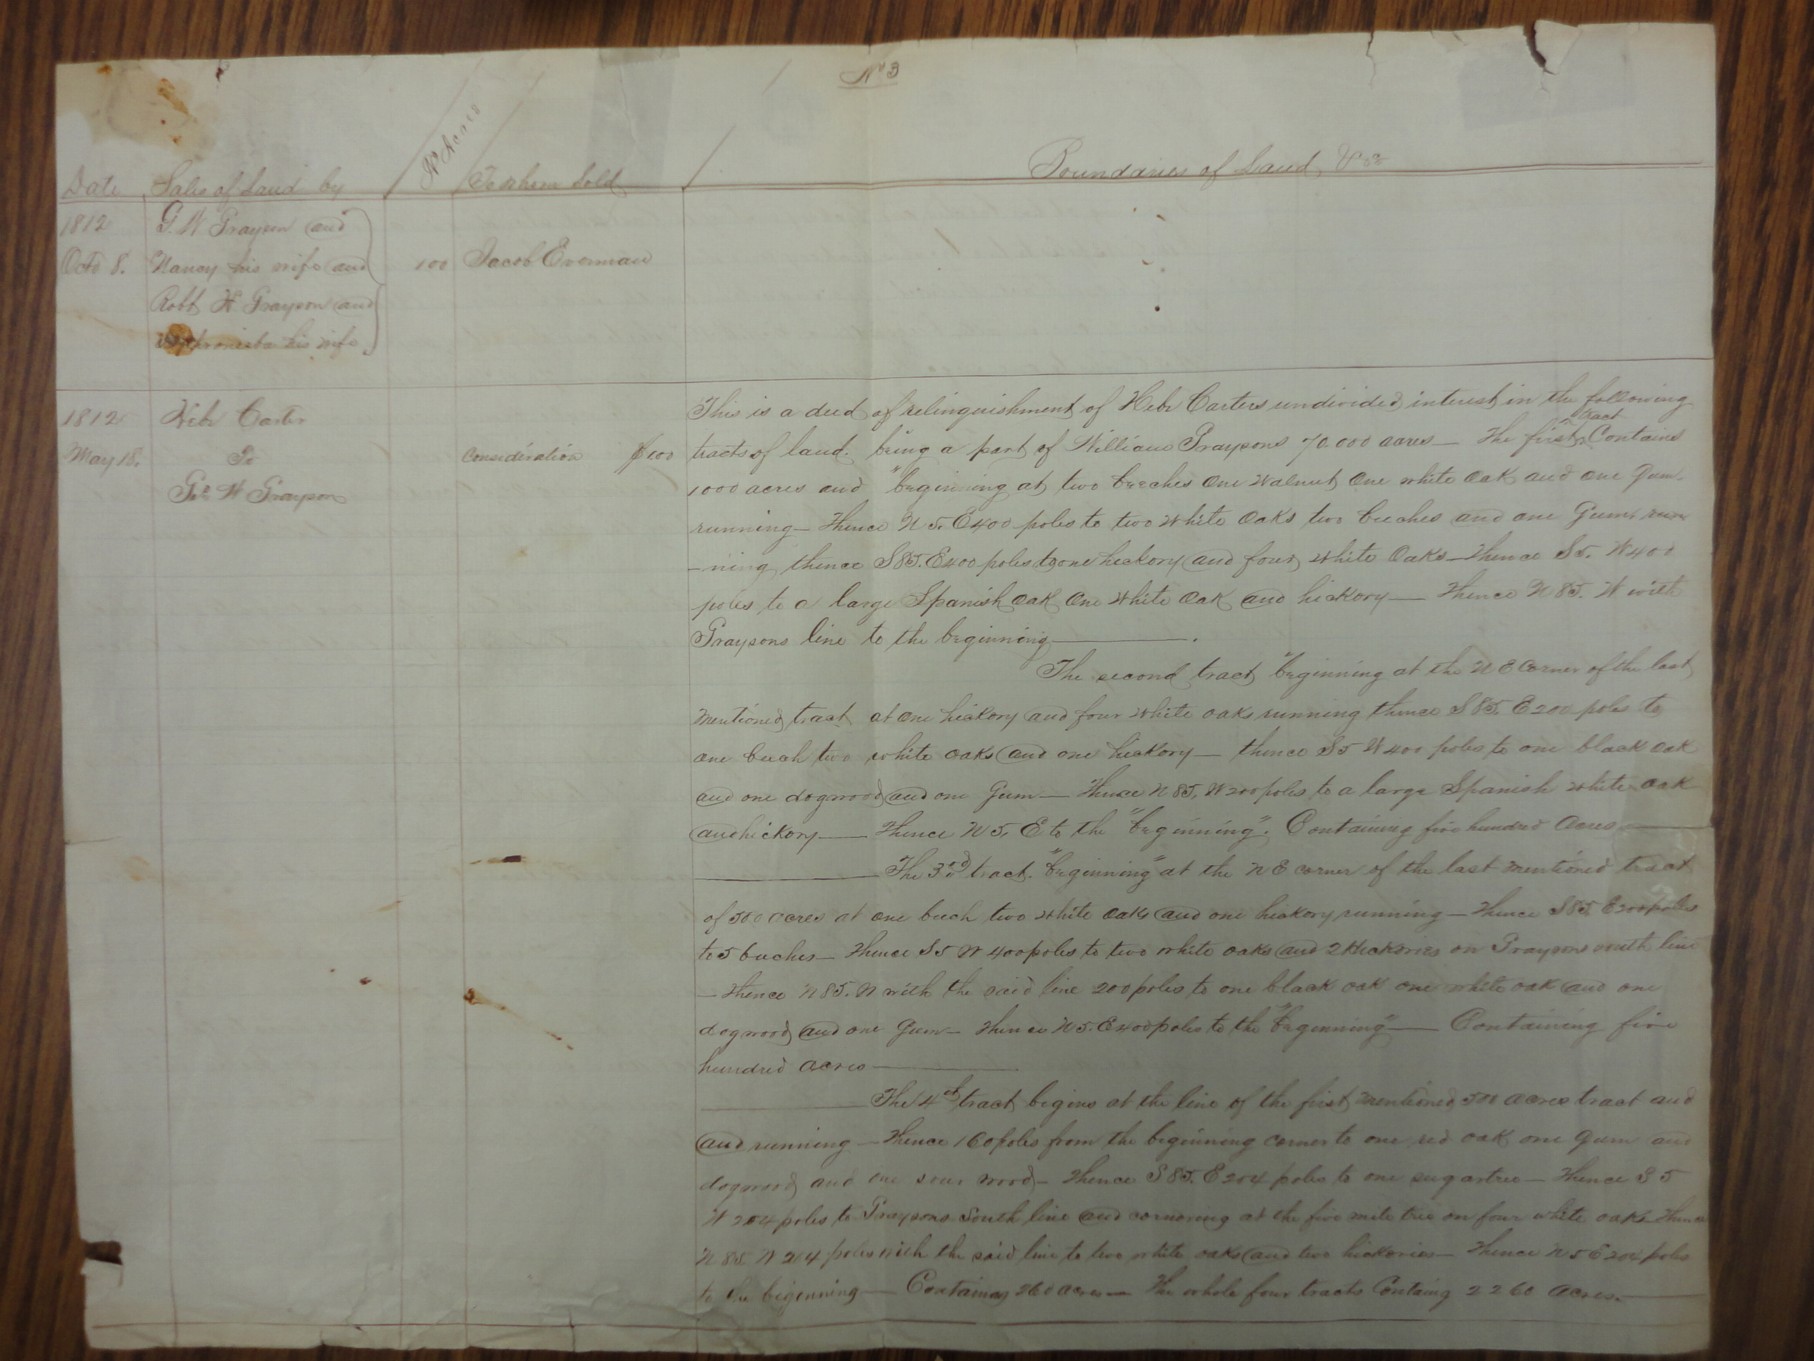 No 3
Date Sales of Land by No Acres To whom Sold Boundaries of Land, &c
1812 G. W Grayson and
Octo 8. Nancy his wife and 100 Jacob Everman
Robt H Grayson and
his wife
1812 Hebe Carter
May 18. To Consideration $100
Geo W Grayson
This is a deed of relinquishment of Hebe Carters undivided interest in the following
tracts of land. being a part of William Graysons 70.000 acres — The first tract Contains
1000 acres and "beginning at two beeches one Walnut one white Oak and one Gum
running — Thence N 5. E 400 poles to two White Oaks two beeches and one Gum run
-ning thence S 85. E 400 poles to one hickory and four white Oaks — Thence S 5. W 400
poles to a large Spanish oak one White Oak and hickory — Thence N 85. W with
Graysons line to the beginning — .
The second tract beginning at the N E Corner of the last
mentioned tract at one hickory and four White oaks running thence S 85. E 200 poles to
one beech two white oaks and one hickory — thence S 5 W 400 poles to one black oak
and one dogwood and one Gum — Thence N 85. W 200 poles to a large Spanish white oak
and hickory — Thence N 5. E to the "beginning". Containing five hundred acres —
— The 3rd tract. "beginning" at the N E corner of the last mentioned tract
of 500 acres at one beech two white oaks and one hickory running — Thence S 85. E 200 poles
to 5 beeches — Thence S 5 W 400 poles to two white oaks and 2 Hickories on Graysons south line
— Thence N 85. W with the said line 200 poles to one black oak one white oak and one
dogwood and one Gum — Thence N 5. E 400 poles to the "beginning" — Containing five
hundred acres —
— The 4th tract begins at the line of the first mentioned 500 acres tract and
and running — Thence 160 poles from the beginning corner to one red oak one gum and
dogwood and one sour wood — Thence S 85. E 204 poles to one sugartree — Thence S 5
W 204 poles to Graysons South line and cornering at the five mile tree on four white oaks Thence
N 85. W 204 poles with the said line to two white oaks and two hickories — Thence N 5 E 204 poles
to the beginning — Containing 260 acres — The whole four tracts Containg 2260 acres. —